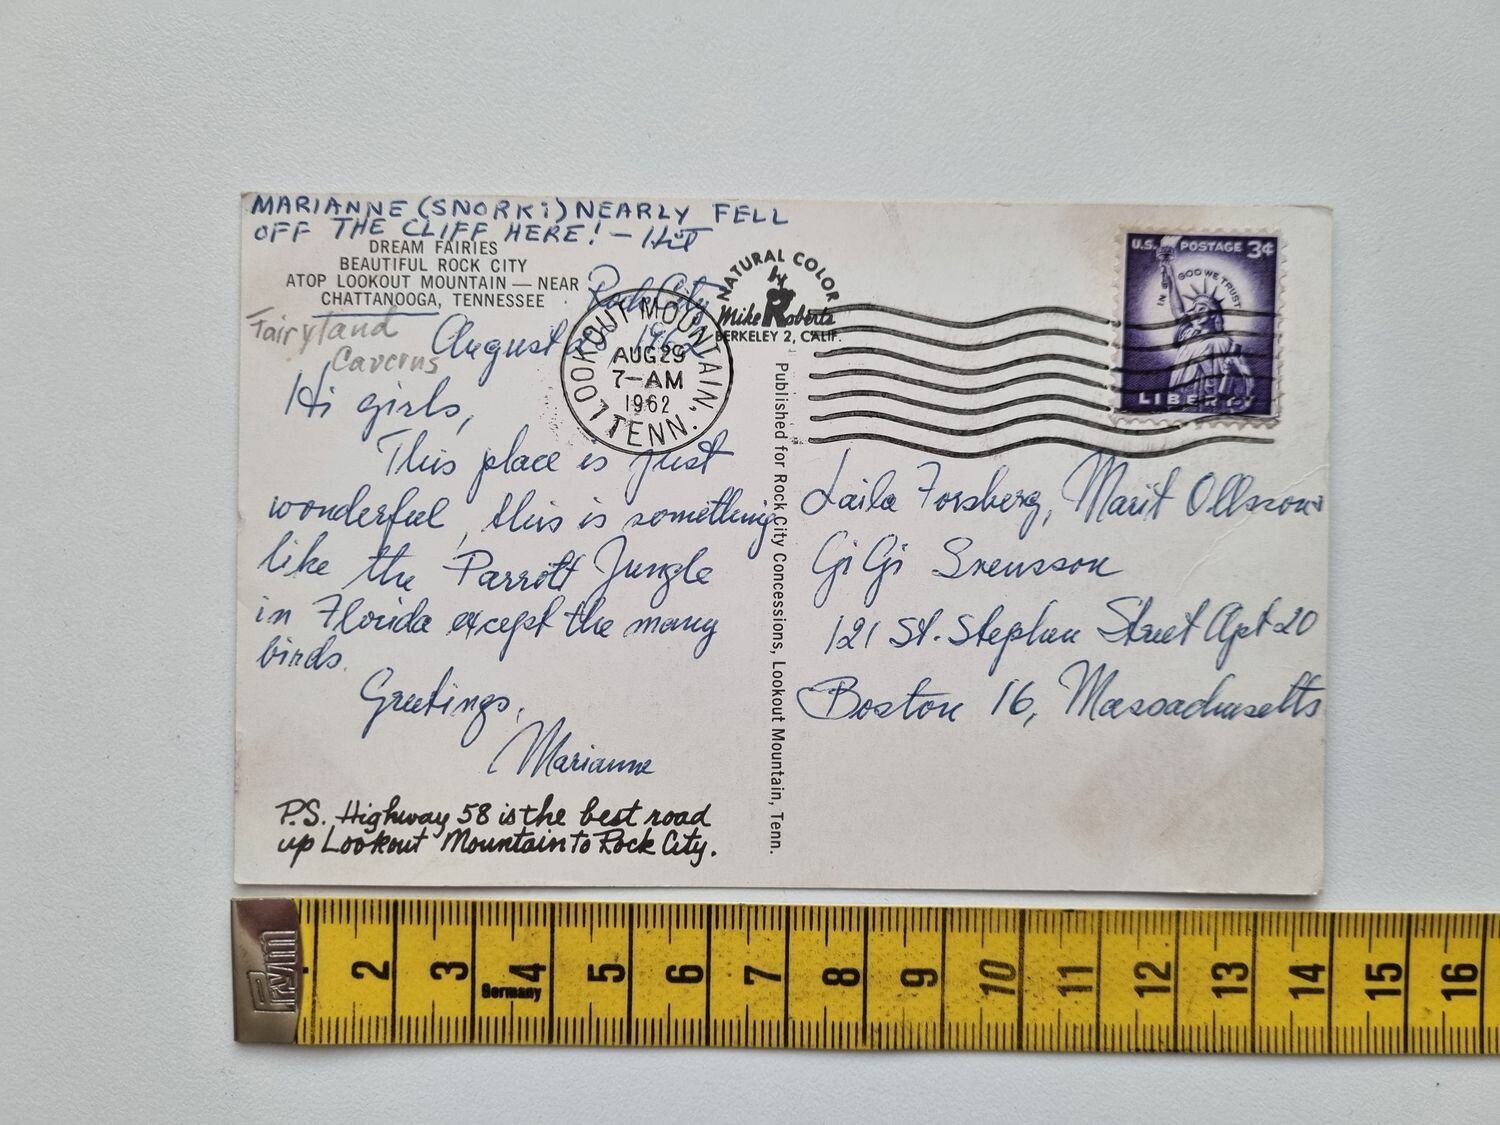 MARIANNE (SNORKI) NEARLY FELL
OFF THE CLIFF HERE! –
DREAM FAIRIES
BEAUTIFUL ROCK CITY
ATOP LOOKOUT MOUNTAIN — NEAR
CHATTANOOGA, TENNESSEE
Fairyland
Caverns
Rock City
August 1962
Hi girls,
This place is just
wonderful, this is something
like the Parrott Jungle
in Florida except the many
birds.
Greetings,
Marianne
P.S. Highway 58 is the best road
up Lookout Mountain to Rock City.
LOOKOUT MOUNTAIN, TENN.
AUG 29
7-AM
1962
NATURAL COLOR
by
Mike Roberts
BERKELEY 2, CALIF.
Published for Rock City Concessions, Lookout Mountain, Tenn.
U.S. POSTAGE 3¢
IN GOD WE TRUST
LIBERTY
Laila Forsberg, Marit Ollsson
GiGi Svensson
121 St. Stephen Street Apt 20
Boston 16, Massachusetts
Prym
2 3 4 5 6 7 8 9 10 11 12 13 14 15 16
Germany